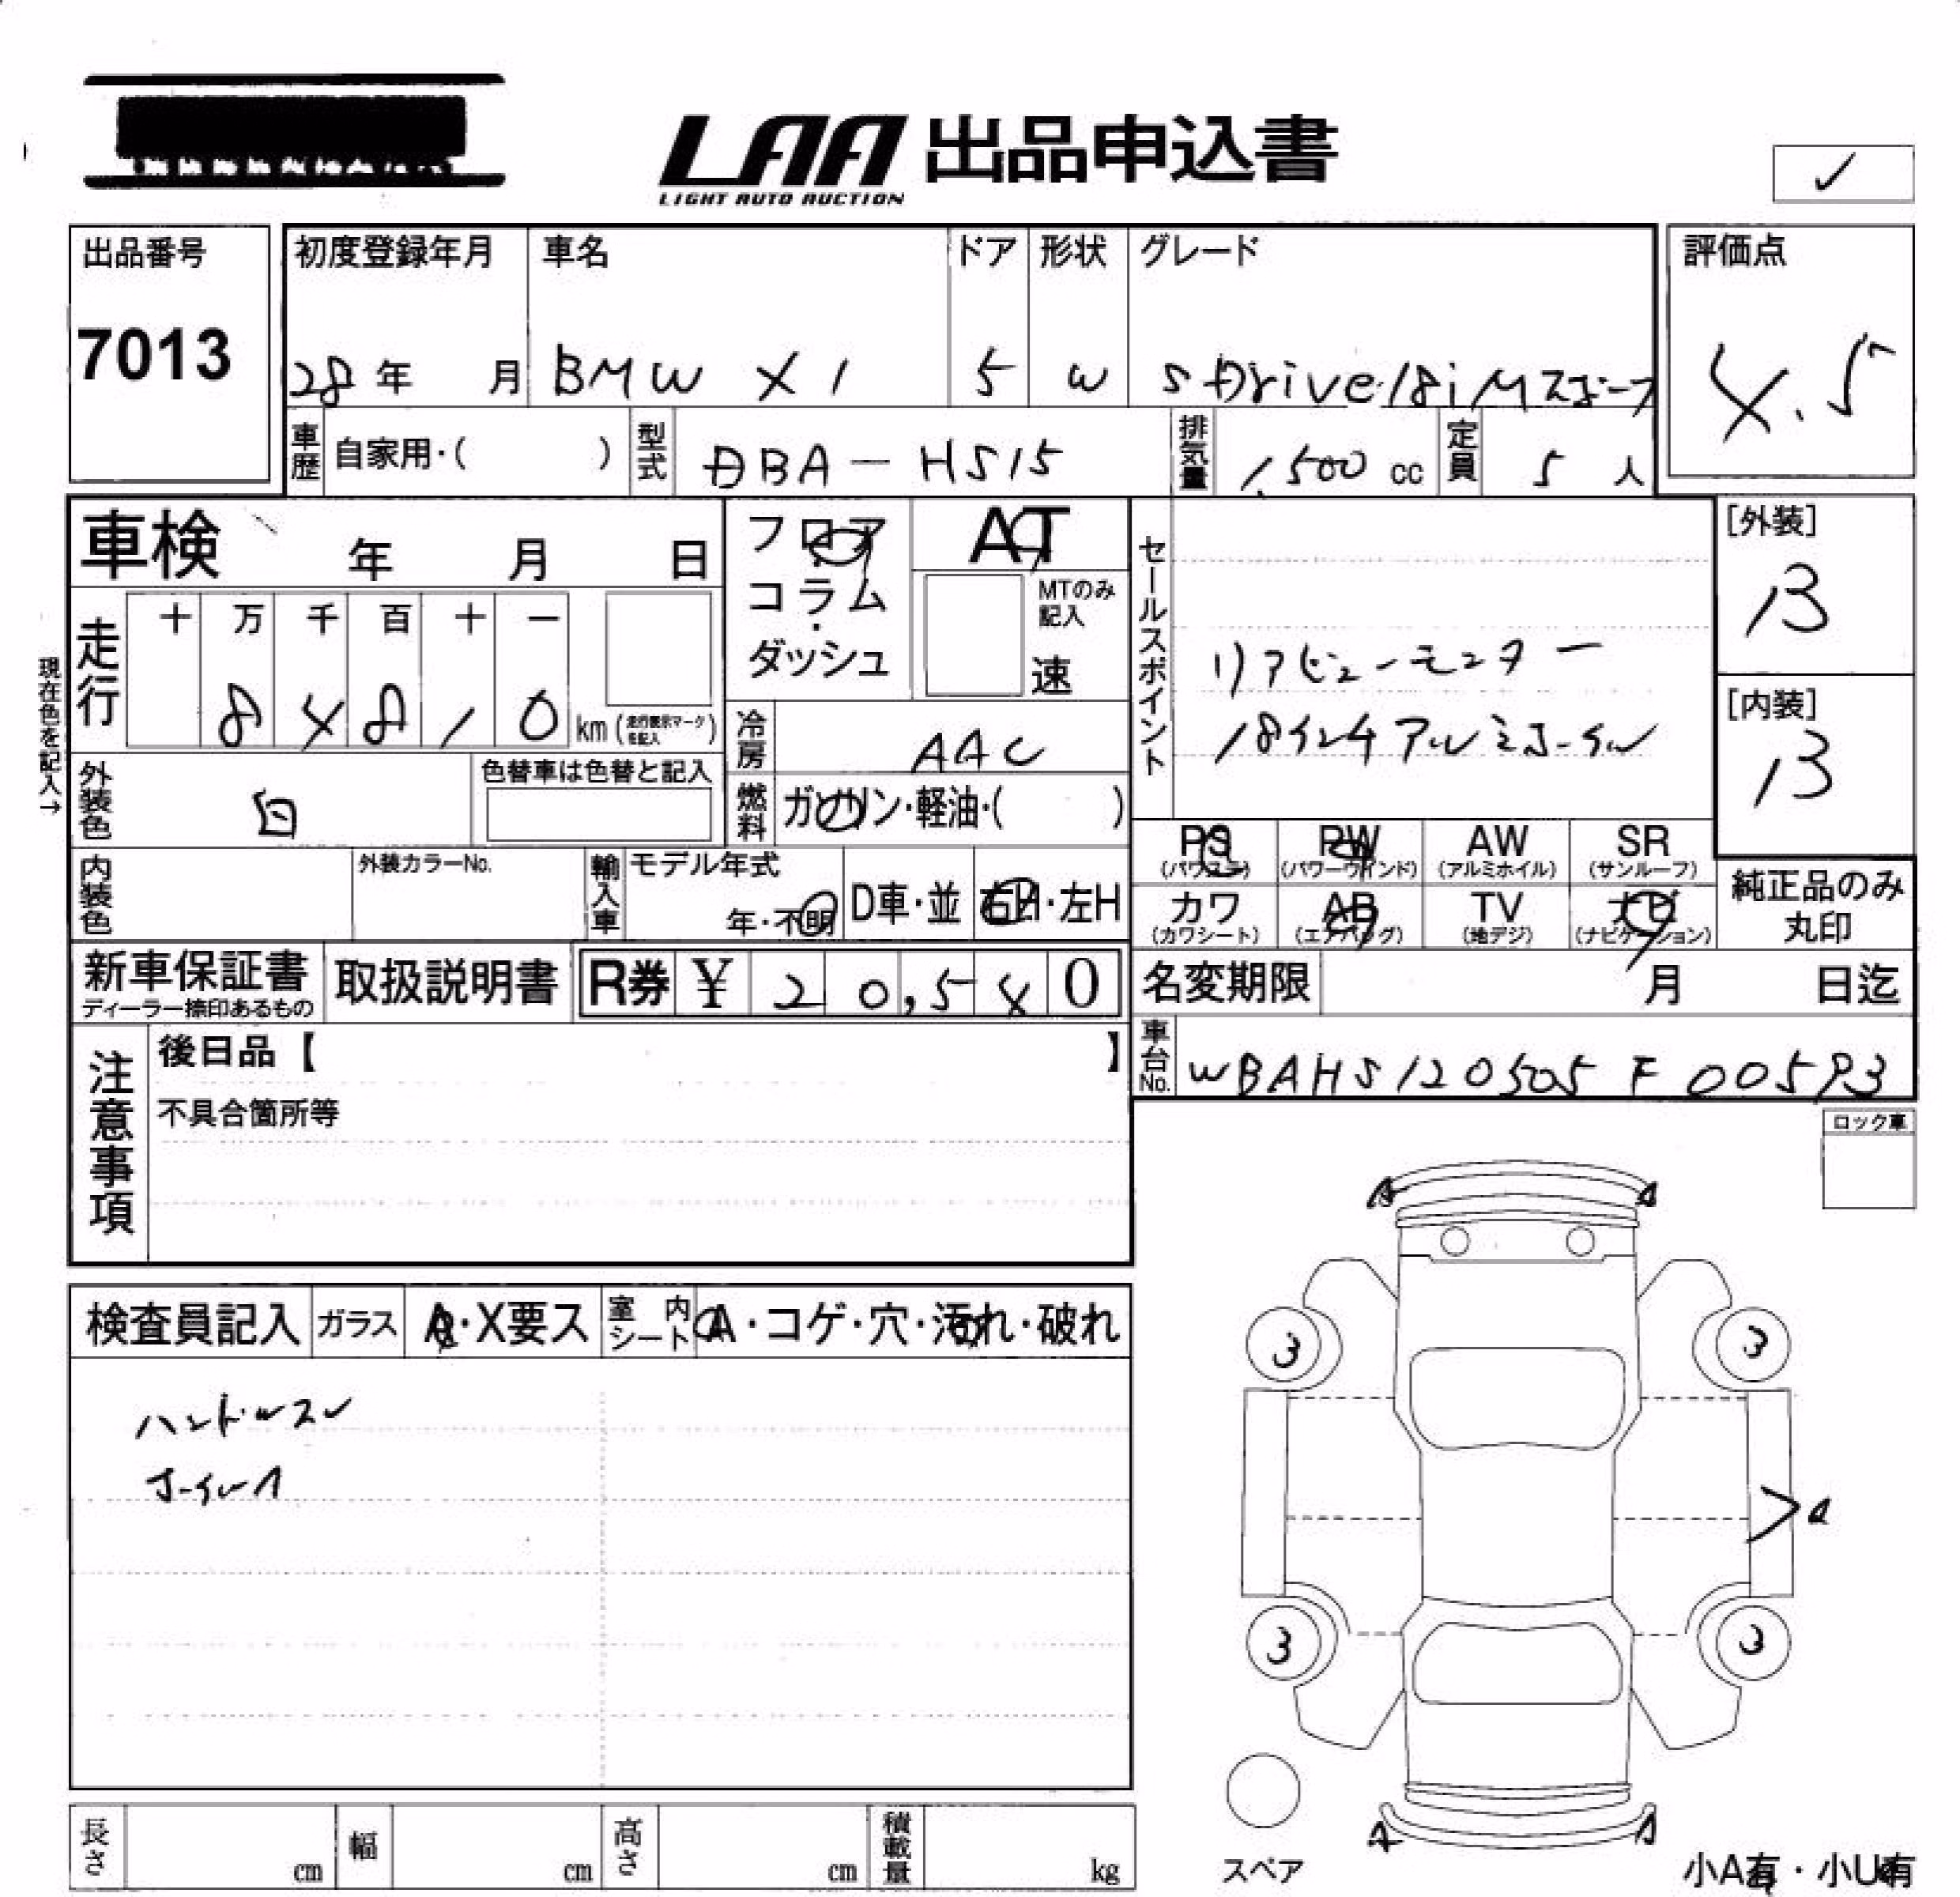 LAA 出品申込書
LIGHT AUTO AUCTION
✓
出品番号
7013
初度登録年月
28年 月
車名
BMW X1
ドア
5
形状
W
グレード
s Drive 18i Mスポーツ
評価点
4.5
車歴 自家用・( )
型式 DBA-HS15
排気量 1,500 cc
定員 5 人
車検 年 月 日
フロア・コラム・ダッシュ
AT
MTのみ記入
速
セールスポイント
リアビューモニター
18インチアルミホイール
[外装]
B
[内装]
B
現在色を記入→
走行 十 万 千 百 十 一
8 4 8 1 0 km (走行表示マークを記入)
冷房 AAC
外装色 白
色替車は色替と記入
燃料 ガソリン・軽油・( )
PS (パワステ)
PW (パワーウインド)
AW (アルミホイル)
SR (サンルーフ)
カワ (カワシート)
AB (エアバッグ)
TV (地デジ)
ナビ (ナビゲーション)
純正品のみ丸印
内装色
外装カラーNo.
輸入車
モデル年式
年・不明
D車・並
右H・左H
新車保証書
ディーラー捺印あるもの
取扱説明書
R券 ¥ 20,540
名変期限 月 日迄
車台No. WBAHS120505F00593
注意事項
後日品【 】
不具合箇所等
ロック車
検査員記入
ガラス A・X要ス
室内シート A・コゲ・穴・汚れ・破れ
ハンドルスレ
ホイールA
A
A
3
3
A
3
3
A
A
スペア
小A有・小U有
長さ cm
幅 cm
高さ cm
積載量 kg